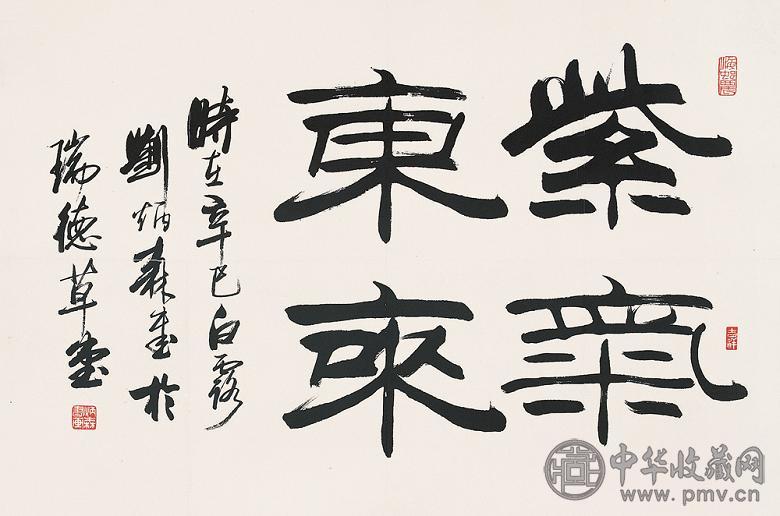 紫氣
東來
時在辛巳白露
劉炳森書於
瑞德草堂
中华收藏网
www.pmv.cn